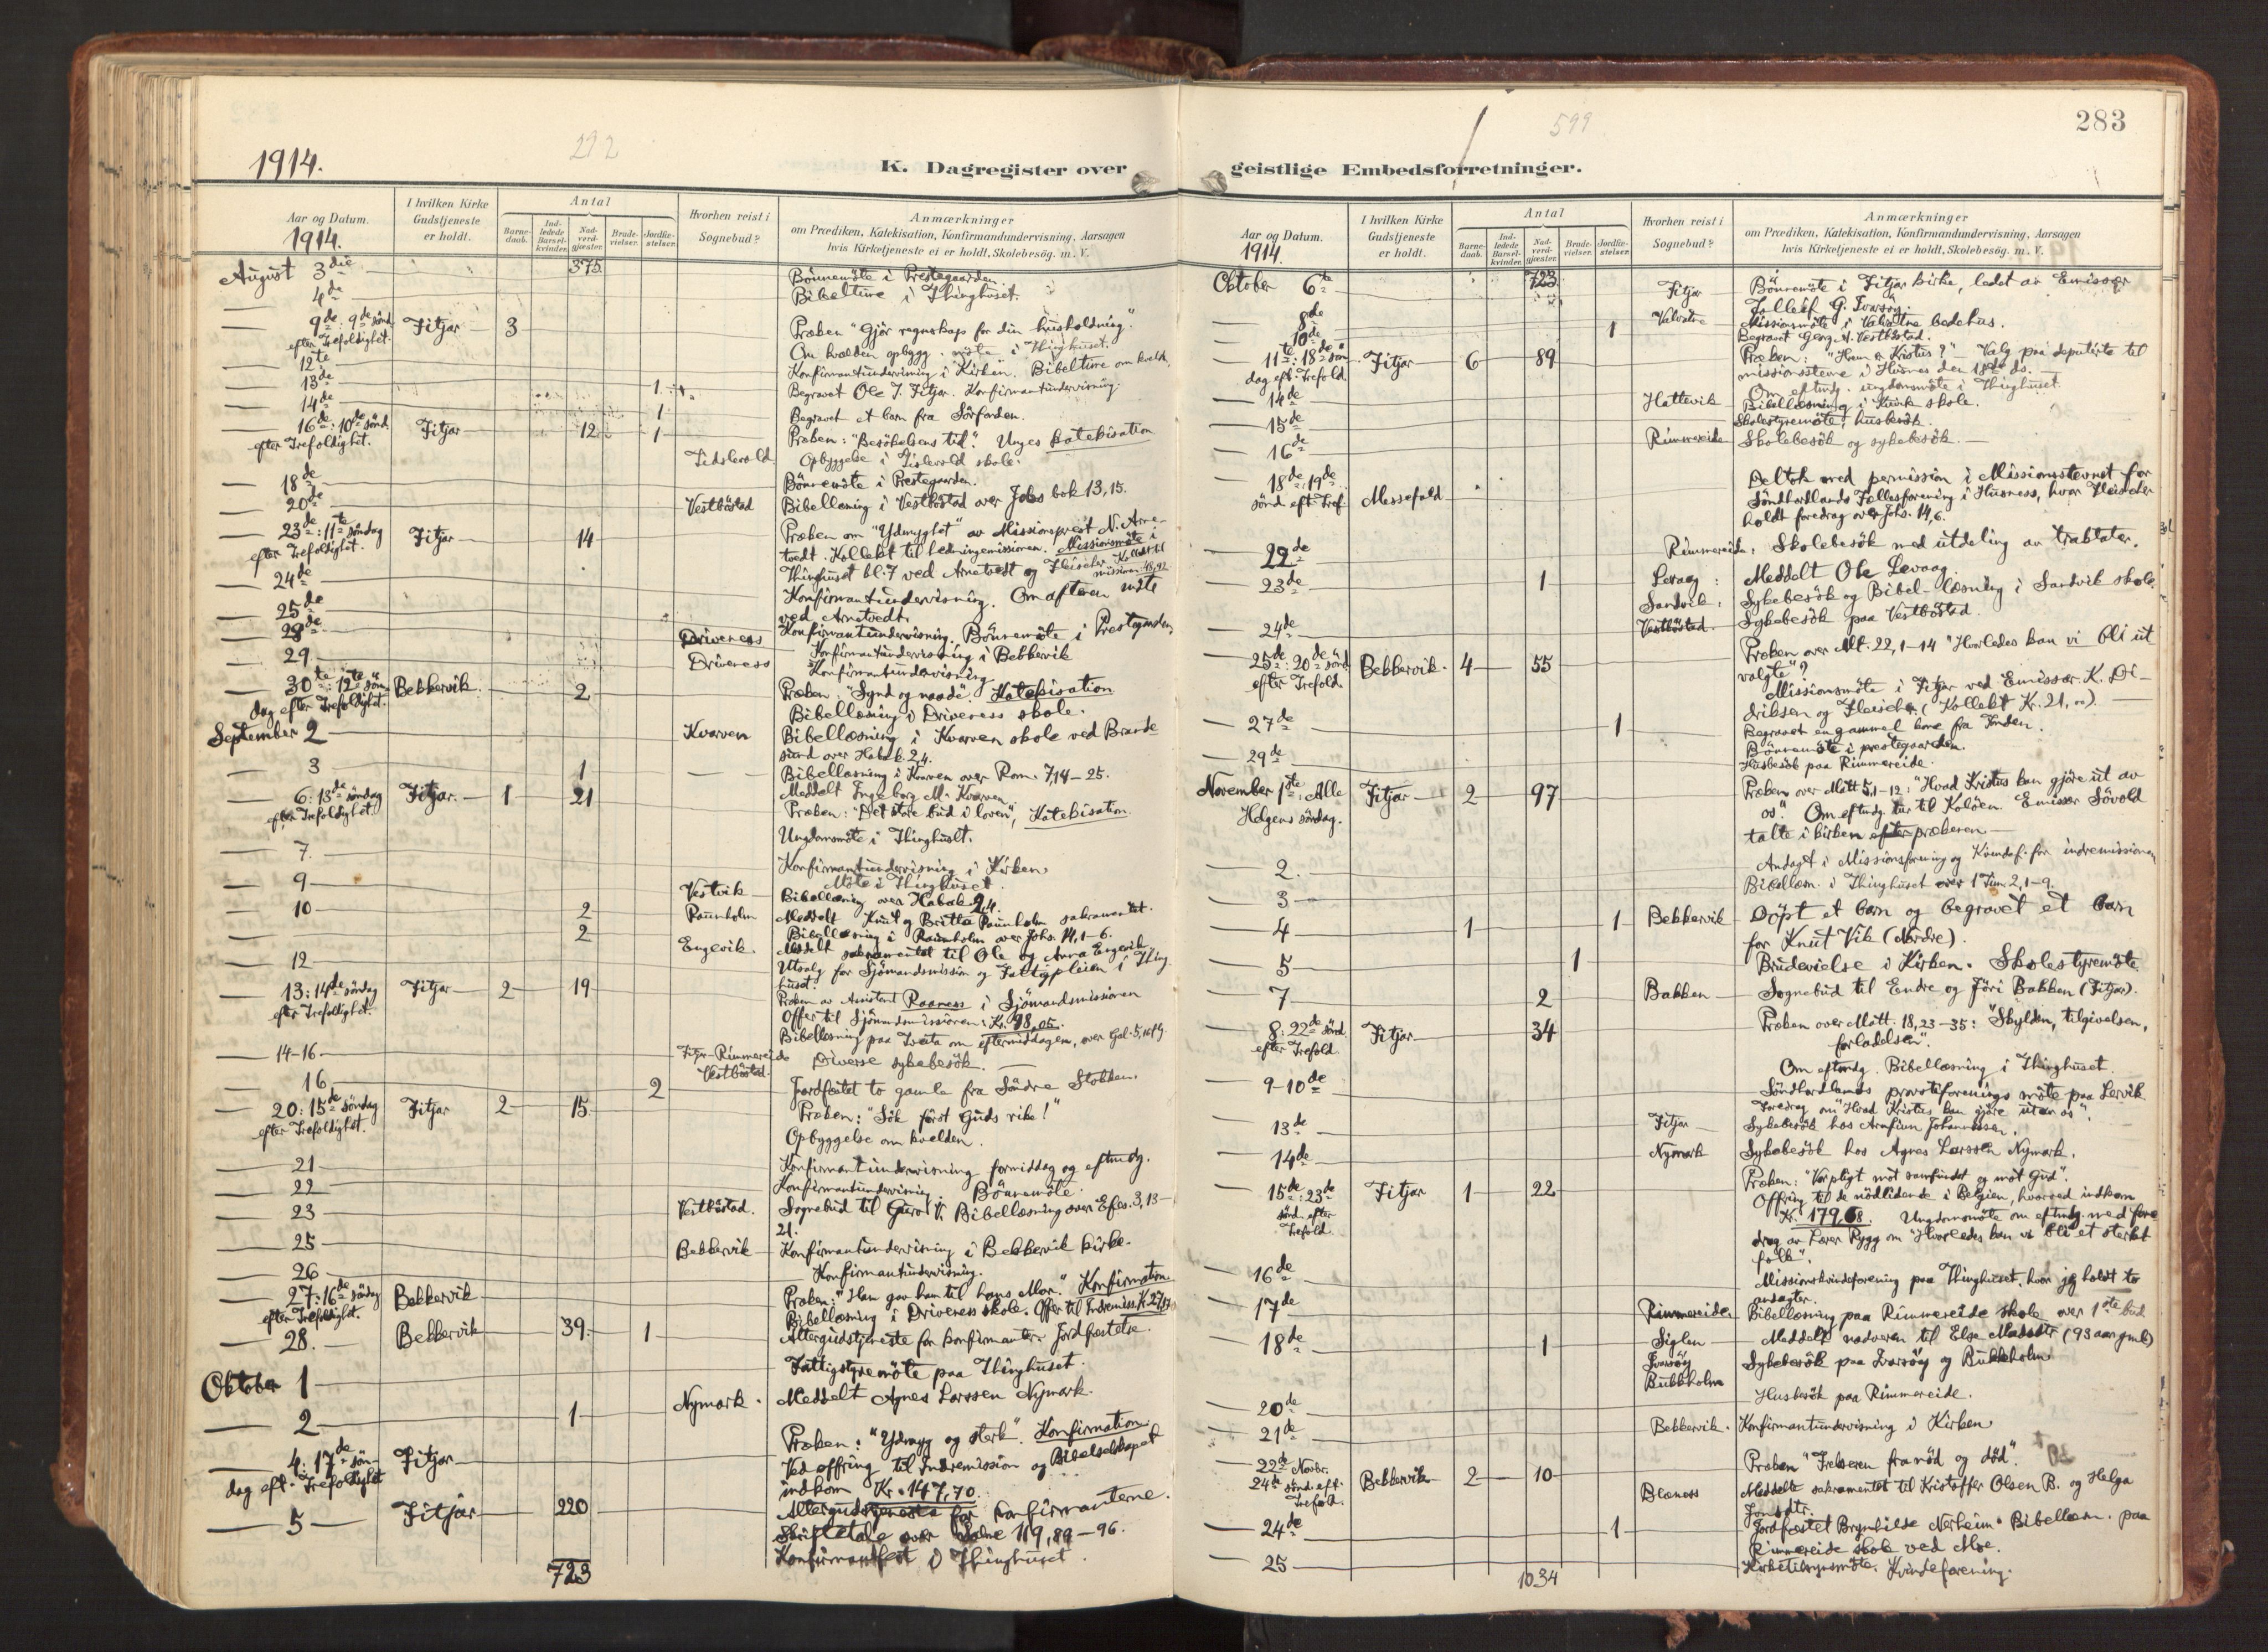 1914.
292
K. Dagregister over
Aar og Datum.
1914.
I hvilken Kirke
Gudstjeneste
er holdt.
Antal
Barne-
daab.
Ind-
ledede
Barsel-
kvinder.
Nad-
verd-
gjæster.
Brude-
vielser.
Jordfæ-
stelser.
Hvorhen reist i
Sognebud?
Anmærkninger
om Prædiken, Katekisation, Konfirmandundervisning, Aarsagen
hvis Kirketjeneste ei er holdt, Skolebesög. m. V.
August 3die 375 Bönnemöte i Prestegaarden
4de Bibeltime i Thinghuset.
9de: 9de sönd. Fitjar 3 Præken "Gjör regnskap for din husholdning."
efter Trefoldighet. Om kvelden opbygg. möte i Thinghuset.
12te Konfirmantundervisning i Kirken. Bibeltime om kveld.
13de 1 Begravet Ole J. Fitjar. Konfirmantundervisning.
14de 1 Begravet et barn fra Sörfonden.
16de: 10de sönd. Fitjar 12 1 Præken: "Besökelsens tid". Unges katekisation
efter Trefoldighet. Tidslevold Opbyggelse i Tislevold skole.
18de Bönnemöte i Prestegaarden.
20de Vestböstad Bibellæsning i Vestböstad over Jobs bok 13, 15.
23de: 11te söndag Fitjar 14 Præken om "Ydmyghet" av Missionsprest N. Arne-
efter Trefoldighet. tvedt. Kollekt til hedningemissionen. Missionsmöte i
Thinghuset kl. 7 ved Arnetvedt og Fleischer Kollekt til
missionen 48,92
24de Konfirmantundervisning. Om aftenen möte
ved Arnetvedt.
25de Konfirmantundervisning. Bönnemöte i Prestegarden
28de Driveness Konfirmantundervisning i Bekkervik
29 Driveness Konfirmantundervisning
30te: 12te sön- Bekkervik. 2 Præken: "Synd og naade". Katekisation
dag efter Trefoldighet. Bibellæsning i Driveness skole.
September 2 Kvarven Bibellæsning i Kvarven skole ved Brande
sund over Habak. 2,4.
3 1 Bibellæsning i Kvarven over Rom. 7,14-25.
Meddelt Ingeborg M. Kvarven
6: 13de söndag Fitjar. 1 21 Præken: "Det store bud i loven", Katekisation.
efter Trefoldighet. Ungdomsmöte i Thinghuset.
7. Konfirmantundervisning i Kirken
Möte i Thinghuset.
9 Vestvik Bibellæsning over Habak 2,4.
10 2 Raunholm Meddelt Knut og Britha Raunholm sakramentet.
Bibellæsning i Raunholm over Johs. 14,1-6.
2 Engevik. Meddelt sakramentet til Ole og Anna Engevik
12 Utsalg for Sjömandsmission og Fattigpleien i Thing
huset.
13: 14de söndag Fitjar 2 19 Præken av Assistent Raaness i Sjömandsmissionen
efter Trefoldighet. Offer til Sjömandsmissionen: Kr. 98,05.
Bibellæsning paa Tveita om eftermiddagen, over Gal. 5,16 flg
14-16 Fitjar-Rimmereide
Vestböstad. Diverse sykebesök.
16 2 Jordfæstet to gamle fra Söndre Stokken.
20: 15de söndag Fitjar 2 15. Præken: "Sök först Guds rike!"
efter Trefoldighet. Opbyggelse om kvelden.
21 Konfirmantundervisning formiddag og eftmdg.
22 Konfirmantundervisning. Bönnemöte.
23 Vestböstad. Sognebud til Guro V. Bibellæsning over Efes. 3, 13-
21.
25 Bekkervik Konfirmantundervisning i Bekkervik kirke.
26 Konfirmantundervisning.
27: 16de söndag Bekkervik Præken: "Han gav ham til hans Mor". Konfirmation.
efter Trefoldighet. Bibellæsning i Driveness skole. Offer til Indremiss.
28. Bekkervik 39. 1 Altergudstjeneste for konfirmanter. Jordfæstelse.
Oktober 1 Fattigstyremöte paa Thinghuset.
2 1 Nymark. Meddelt Agnes Larssen Nymark.
4: 17de sön- Fitjar Præken: "Ydmyg og sterk". Konfirmation.
dag eft. Trefoldighet Ved offring til Indremission og Bibelselskapet
indkom Kr. 147,70.
5 Fitjar 220 Altergudstjeneste for konfirmanterne.
Skriftetale over Salme 119, 89-96.
Konfirmantfest i Thinghuset.
723
599
283
geistlige Embedsforretninger.
Aar og Datum.
1914.
I hvilken Kirke
Gudstjeneste
er holdt.
Antal
Barne-
daab.
Ind-
ledede
Barsel-
kvinder.
Nad-
verd-
gjæster.
Brude-
vielser.
Jordfæ-
stelser.
Hvorhen reist i
Sognebud?
Anmærkninger
om Prædiken, Katekisation, Konfirmandundervisning, Aarsagen
hvis Kirketjeneste ei er holdt, Skolebesög. m. V.
Oktober 6te 723. Fitjar Bönnemöte i Fitjar kirke, ledet av Emissær
Tolleif G. Ivarsöy.
8de Valvatne Missionsmöte i Valvatne bedehus.
10de 1 Begravet Georg N. Vestböstad.
11te: 18de sön Fitjar 6 89 Præken: "Hvem er Kristus?" - Valg paa deputerte til
dag eft. Trefold. missionsstevne i Husnes den 18de ds.
Om eftmdg. ungdomsmöte i Thinghuset.
14de Hattevik Bibellæsning i skole.
15de Skolestyremöte, husbesök.
16de Rimmereide Skolebesök og sykebesök.
18de, 19de Messefald Deltok med permission i Missionsstevnet for
sönd eft. Tref. Söndhordlands Fællesforening i Husness, hvor Fleischer
holdt foredrag over Johs. 14,6.
22de Rimmereide, Skolebesök med utdeling av traktater.
23de 1 Levaag: Meddelt Ole Levaag.
Sandvik, Sykebesök og Bibel-læsning i Sandvik skole.
24de Vestböstad. Sykebesök paa Vestböstad.
25de: 20de sönd. Bekkervik. 4 55 Præken over Mt. 22, 1-14 "Hvorledes kan vi bli ut
efter Trefold. valgte"?
Missionsmöte i Fitjar ved Emissær K. Di-
driksen og Fleischer (Kollekt Kr. 21,00).
27de 1 Begravet en gammel kone fra Inden.
Bönnemöte i prestegaarden.
29de Husbesök paa Rimmereide.
November 1ste, Alle Fitjar 2 97 Præken over Matt. 5,1-12: "Hvad Kristus kan gjöre ut av
Helgens söndag. os". Om eftmdg. tur til Kolöen. Emissær Sövold
talte i kirken efter prækenen.
2. Andagt i Missionsforening og Kvindef. for indremissionen
3 Bibellæsn. i Thinghuset over 1 Tim. 2,1-9.
4 1 1 Bekkervik Döpt et barn og begravet et barn
for Knut Vik (Nordre).
5 1 Brudevielse i Kirken. Skolestyremöte.
7 2 Bakken Sognebud til Endre og Jöri Bakken (Fitjar).
8: 22de sönd. Fitjar 34 Præken over Matt. 18, 23-35: "Skylden, tilgivelsen,
efter Trefold. forladelsen".
Om eftmdg. Bibellæsning i Thinghuset.
9-10de Söndhordlands provstiforenings möte paa Lervik.
Foredrag om "Hvad Kristus kan gjöre ut av os".
13de Fitjar Sykebesök hos Arnfinn Johannessen.
14de Nymark Sykebesök hos Agnes Larssen Nymark.
15de: 23de Fitjar 1 22 Præken: "Vor pligt mot samfundet og mot Gud".
sönd. efter
Trefold. Offring til de nödlidende i Belgien, hvorved indkom
Kr. 179,68. Ungdomsmöte om eftmdg. med fore
drag av Lærer Rygg om "Hvorledes kan vi bli et sterkt
folk".
16de Missionskvindeforening paa Thinghuset, hvor jeg holdt to
andagter.
17de Rimmereide. Bibellæsning paa Rimmereide skole over 1ste bud.
18de 1 Siglen Meddelt nadveren til Else Madsdtr (93 aar gml.)
Ivarsöy
Bukkholm Sykebesök paa Ivarsöy og Bukkholm
20de Husbesök paa Rimmereide.
21de Bekkervik. Konfirmantundervisning i Kirken
22de Novbr. Bekkervik 2 10 Præken "Frelseren fra nöd og död".
24de sönd. eft.
Trefold. Blæness Meddelt sakramentet til Kristoffer Olsen B. og Helga
Jonsdtr.
24de 1 Jordfæstet Brynhilde Nerheim. Bibellæsn. paa
Rimmereide skole ved Moe.
25 Kirketilsynsmöte. Kvindeforening.
1034